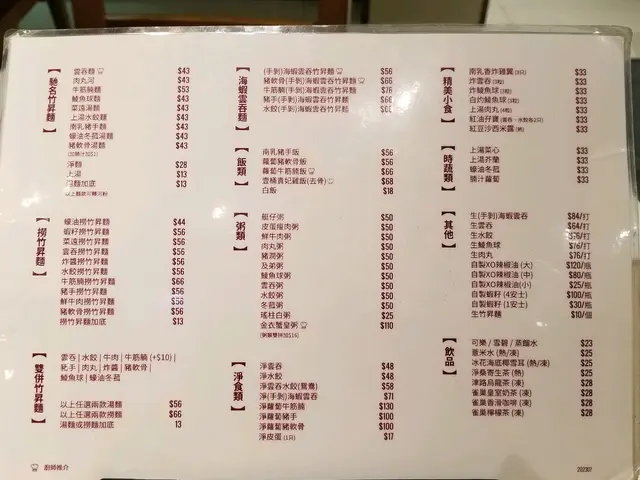 【馳名竹昇麵】
雲吞麵 $43
肉丸河 $43
牛筋腩麵 $53
鯪魚球麵 $43
菜遠湯麵 $43
上湯水餃麵 $43
南乳豬手麵 $43
蠔油冬菰湯麵 $43
豬軟骨湯麵 $43
淨麵 $28
上湯 $13
麵加底 $13
【撈竹昇麵】
蠔油撈竹昇麵 $44
蝦籽撈竹昇麵 $56
菜遠撈竹昇麵 $56
雲吞撈竹昇麵 $56
炸醬撈竹昇麵 $56
水餃撈竹昇麵 $56
牛筋腩撈竹昇麵 $66
豬手撈竹昇麵 $56
鮮牛肉撈竹昇麵 $56
豬軟骨撈竹昇麵 $56
撈竹昇麵加底 $13
【雙併竹昇麵】
雲吞 | 水餃 | 牛肉 | 牛筋腩 (+$10) |
豬手 | 肉丸 | 炸醬 | 豬軟骨 |
鯪魚球 | 蠔油冬菰
以上任選兩款湯麵 $56
以上任選兩款撈麵 $66
湯麵或撈麵加底 13
廚師推介
【海蝦雲吞麵】
(手剝)海蝦雲吞竹昇麵 $56
豬軟骨(手剝)海蝦雲吞竹昇麵 $66
牛筋腩(手剝)海蝦雲吞竹昇麵 $76
豬手(手剝)海蝦雲吞竹昇麵 $66
水餃(手剝)海蝦雲吞竹昇麵
【飯類】
南乳豬手飯 $56
蘿蔔豬軟骨飯 $56
蘿蔔牛筋腩飯 $66
雲桶貴妃雞飯(去骨) $68
白飯 $18
【粥類】
艇仔粥 $50
皮蛋瘦肉粥 $50
鮮牛肉粥 $50
肉丸粥 $50
豬潤粥 $50
及弟粥 $50
鯪魚球粥 $50
雲吞粥 $50
水餃粥 $50
冬菰粥 $50
瑤柱白粥 $25
金衣蟹皇粥 $110
(粥類雙拼加$16)
【淨食類】
淨雲吞 $48
淨水餃 $48
淨雲吞水餃(鴛鴦) $58
淨(手剝)海蝦雲吞 $71
淨蘿蔔牛筋腩 $130
淨蘿蔔豬手 $100
淨蘿蔔豬軟骨 $100
淨皮蛋 (1只) $17
【精美小食】
南乳香炸雞翼 $33
炸雲吞 $33
炸鯪魚球 $33
白灼鯪魚球 $33
上湯肉丸 $33
紅油孖寶 (雲吞、水餃各2只) $33
紅豆沙西米露 (熱) $33
【時蔬類】
上湯菜心 $33
上湯芥蘭 $33
蠔油冬菰 $33
腩汁蘿蔔 $33
【其他】
生(手剝)海蝦雲吞 $84/打
生雲吞 $64/打
生水餃 $76/打
生鯪魚球 $76/打
生肉丸 $76/打
自製XO辣椒油 (大) $120/瓶
自製XO辣椒油 (中) $80/瓶
自製XO辣椒油(小) $25/瓶
自製蝦籽 (4安士) $100/瓶
自製蝦籽 (1安士) $30/瓶
生竹昇麵 $10/個
【飲品】
可樂 / 雪碧 / 蒸餾水 $23
薏米水 (熱/凍) $25
冰花海底椰雪耳 (熱/凍) $25
淨桑寄生茶 (熱) $25
津路烏龍茶 (凍) $28
雀巢皇室奶茶 (凍) $28
雀巢香滑咖啡 (凍) $28
雀巢檸檬茶 (凍) $28
202307